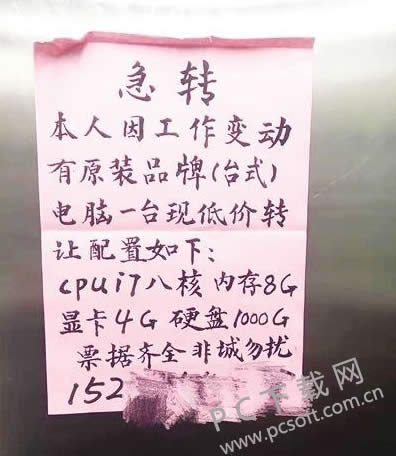 急转
本人因工作变动
有原装品牌(台式)
电脑一台现低价转
让配置如下:
cpui7八核 内存8G
显卡4G 硬盘1000G
票据齐全 非城勿扰
152
PC下载网
www.pcsoft.com.cn